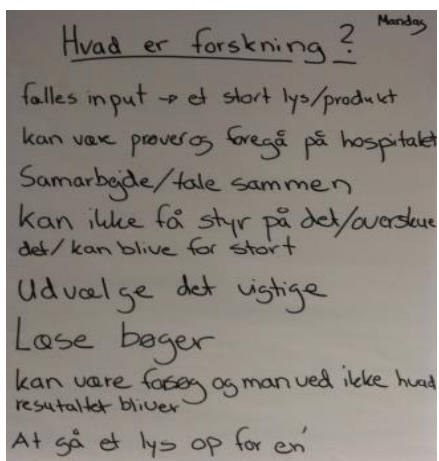 Mandag
Hvad er forskning?
fælles input → et stort lys/produkt
kan være prøver og foregå på hospitalet
Samarbejde/tale sammen
kan ikke få styr på det/overskue
det/kan blive for stort
Udvælge det vigtige
Læse bøger
kan være forsøg og man ved ikke hvad
resutaltet bliver
At gå et lys op for én